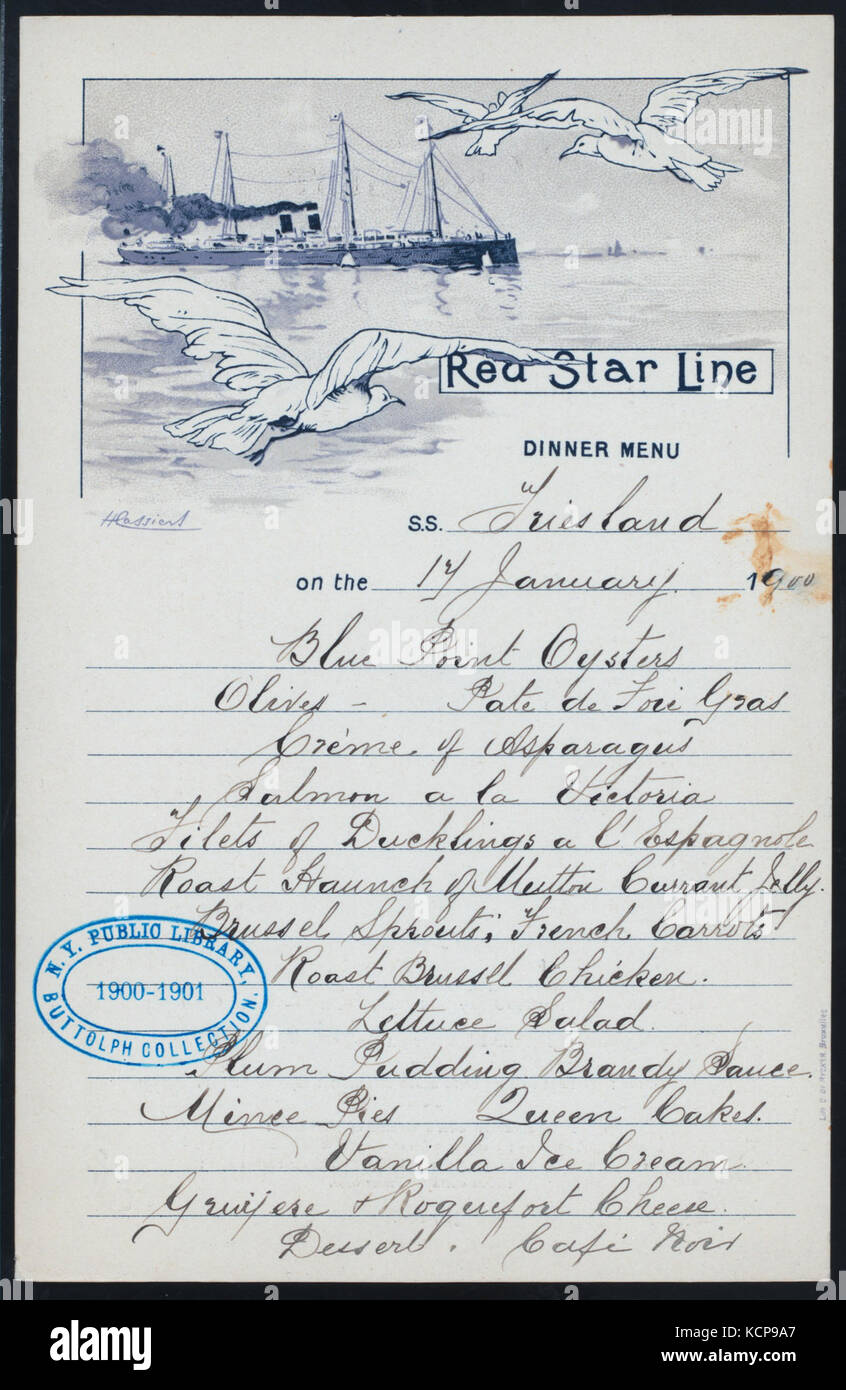 Red Star Line
DINNER MENU
HCassiers
S.S. Friesland
on the 17 January 1900
Blue Point Oysters
Olives - Pate de Foie Gras
Créme of Asparagus
Salmon a la Victoria
Filets of Ducklings a l'Espagnole
Roast Haunch of Mutton Currant Jelly.
Brussel Sprouts; French Carrots
Roast Brussel Chicken.
Lettuce Salad.
Plum Pudding Brandy Sauce.
Mince Pies Queen Cakes.
Vanilla Ice Cream.
Gruyere & Roquefort Cheese.
Dessert. Café Noir
N.Y. PUBLIC LIBRARY,
1900-1901
BUTTOLPH COLLECTION.
alamy
alamy stock photo
Image ID: KCP9A7
www.alamy.com